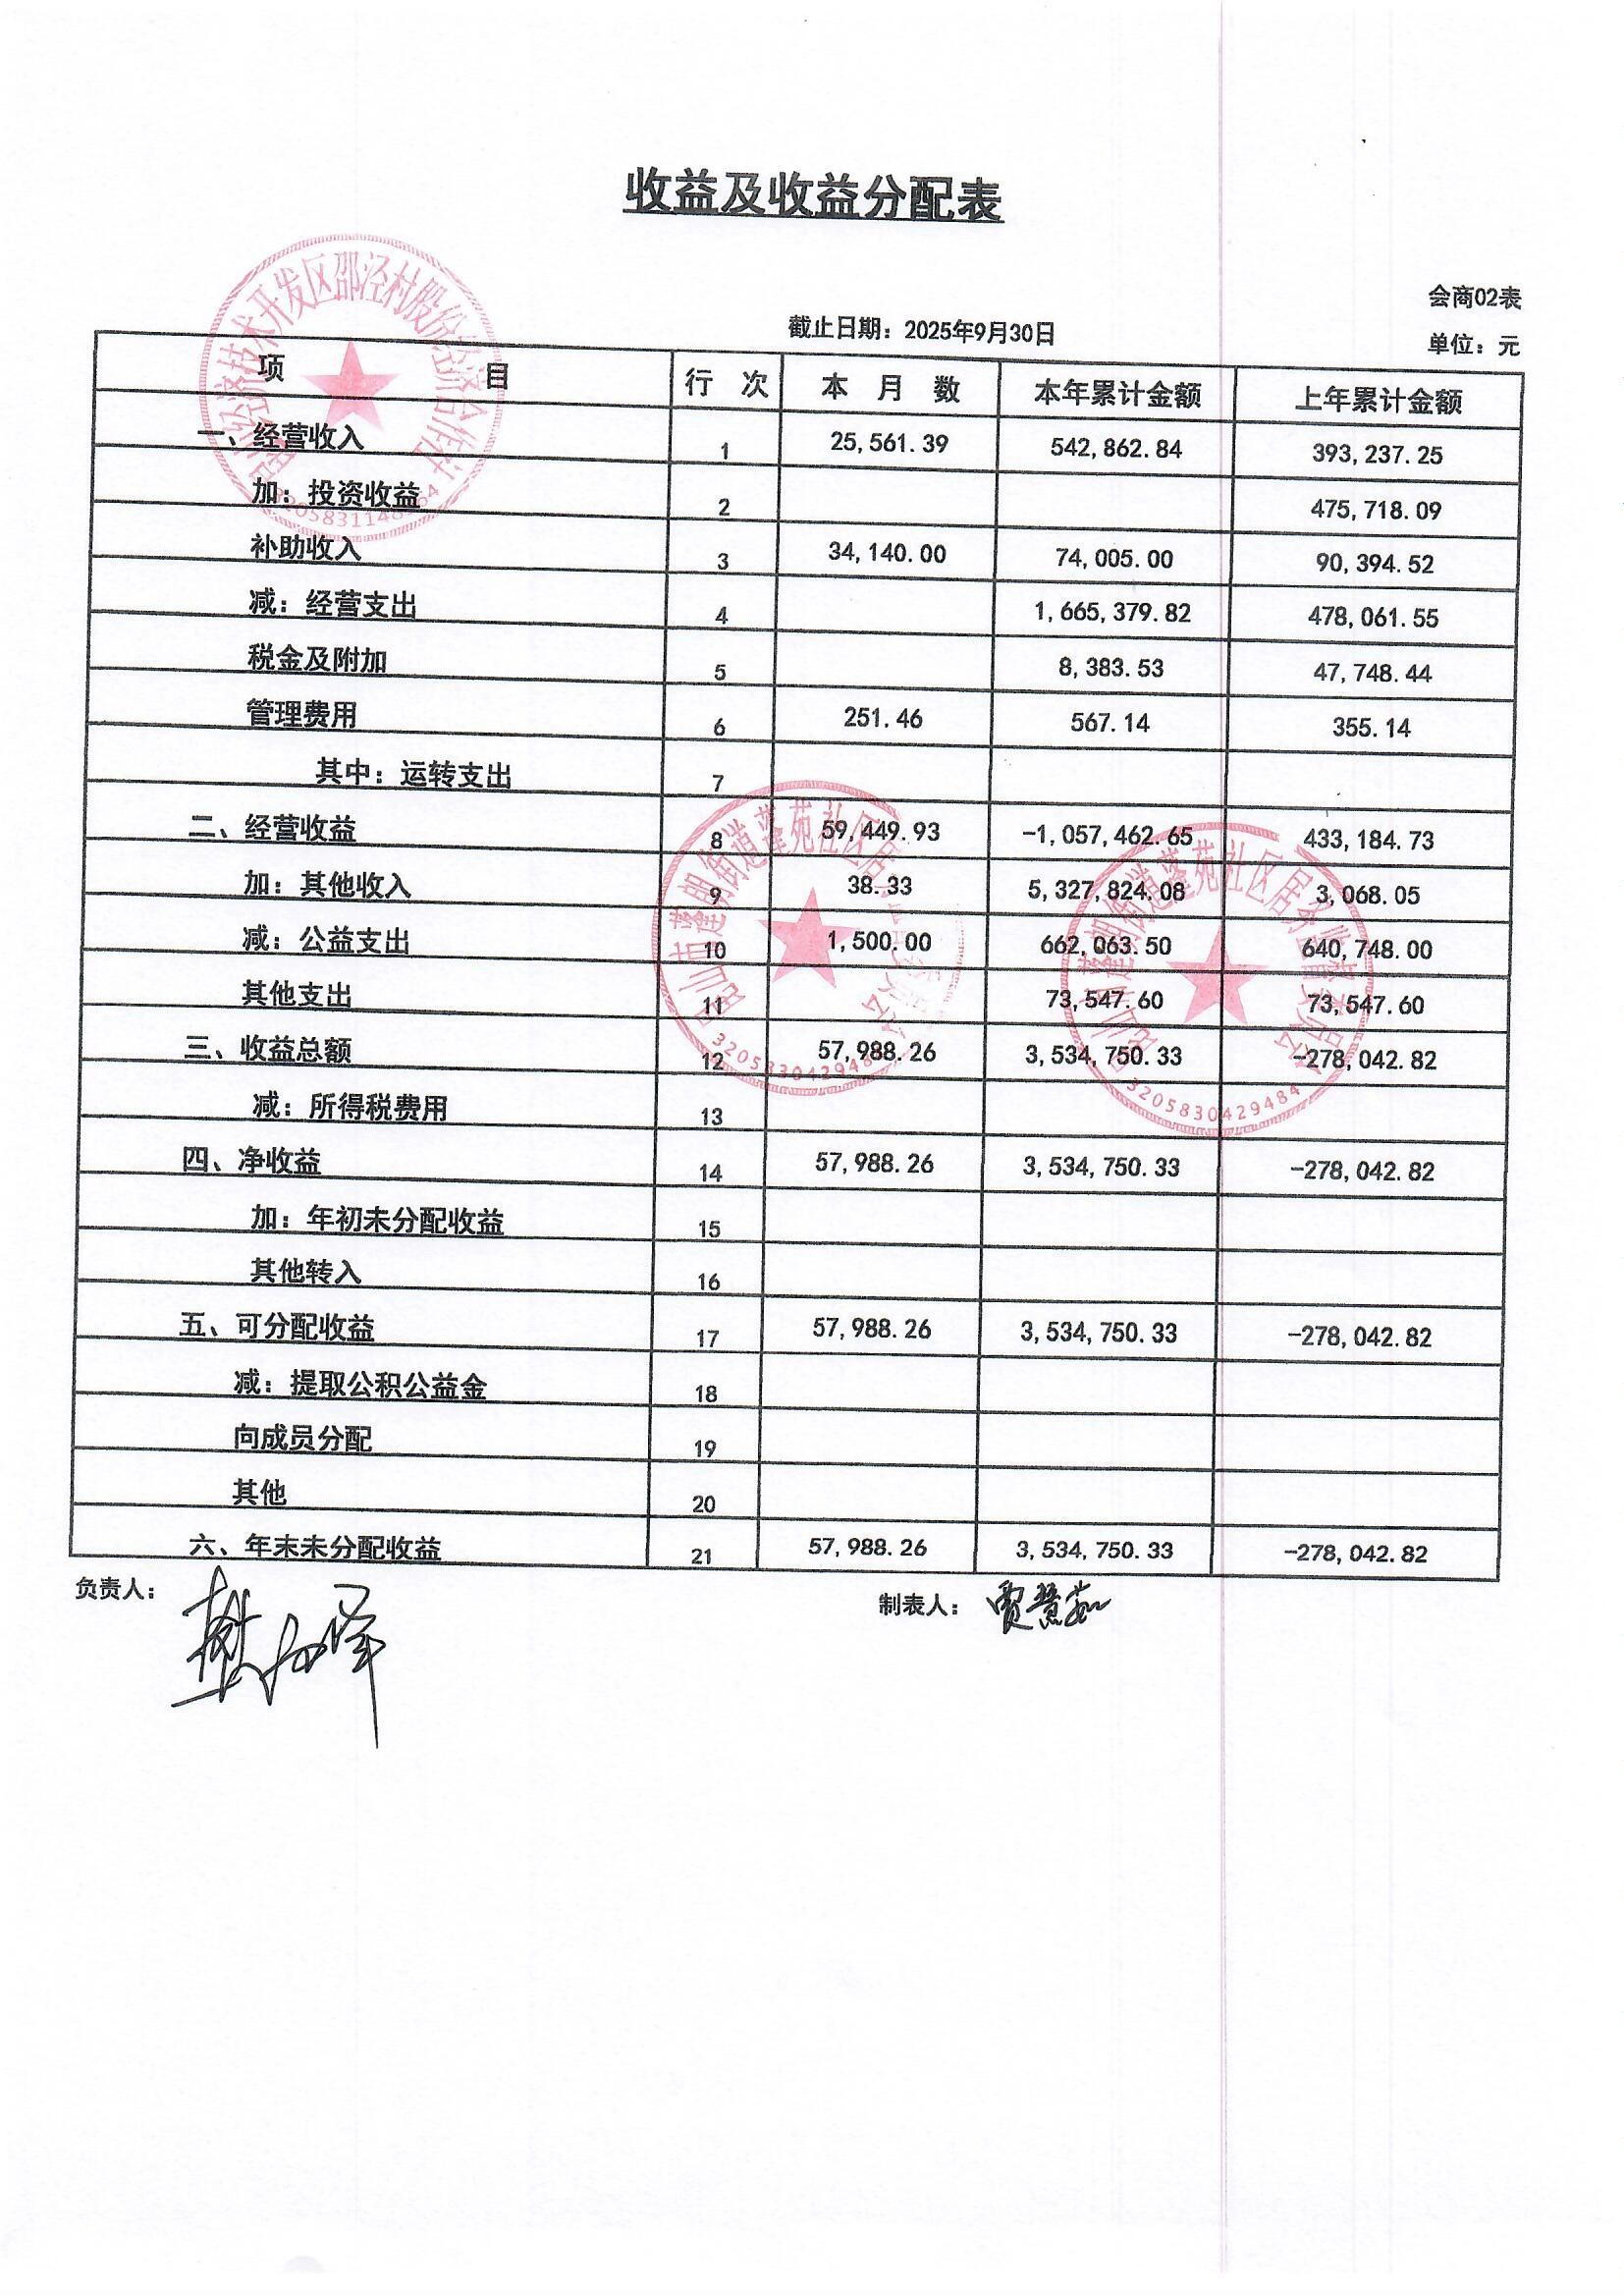 收益及收益分配表
会商02表
截止日期：2025年9月30日
单位：元
项 目 行 次 本 月 数 本年累计金额 上年累计金额
一、经营收入 1 25,561.39 542,862.84 393,237.25
加：投资收益 2 475,718.09
补助收入 3 34,140.00 74,005.00 90,394.52
减：经营支出 4 1,665,379.82 478,061.55
税金及附加 5 8,383.53 47,748.44
管理费用 6 251.46 567.14 355.14
其中：运转支出 7
二、经营收益 8 59,449.93 -1,057,462.65 433,184.73
加：其他收入 9 38.33 5,327,824.08 3,068.05
减：公益支出 10 1,500.00 662,063.50 640,748.00
其他支出 11 73,547.60 73,547.60
三、收益总额 12 57,988.26 3,534,750.33 -278,042.82
减：所得税费用 13
四、净收益 14 57,988.26 3,534,750.33 -278,042.82
加：年初未分配收益 15
其他转入 16
五、可分配收益 17 57,988.26 3,534,750.33 -278,042.82
减：提取公积公益金 18
向成员分配 19
其他 20
六、年末未分配收益 21 57,988.26 3,534,750.33 -278,042.82
负责人：
制表人：贾慧茹
经济技术开发区邵泾村股份经济合作社
昆山市蓬朗街道蓬苑社区居
3205830429484
蓬朗街道蓬苑社区居务监督委员会
3205830429484